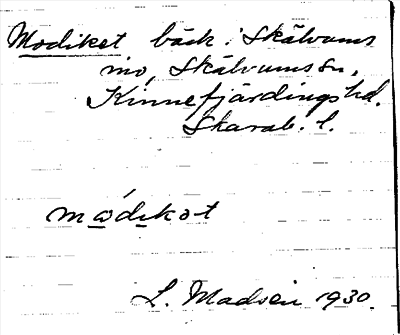 Modiket bäck i Skälvums
mo, Skälvums sn,
Kinnefjärdings hd.
Skarab. l.
módıkət
L. Madsén 1930.